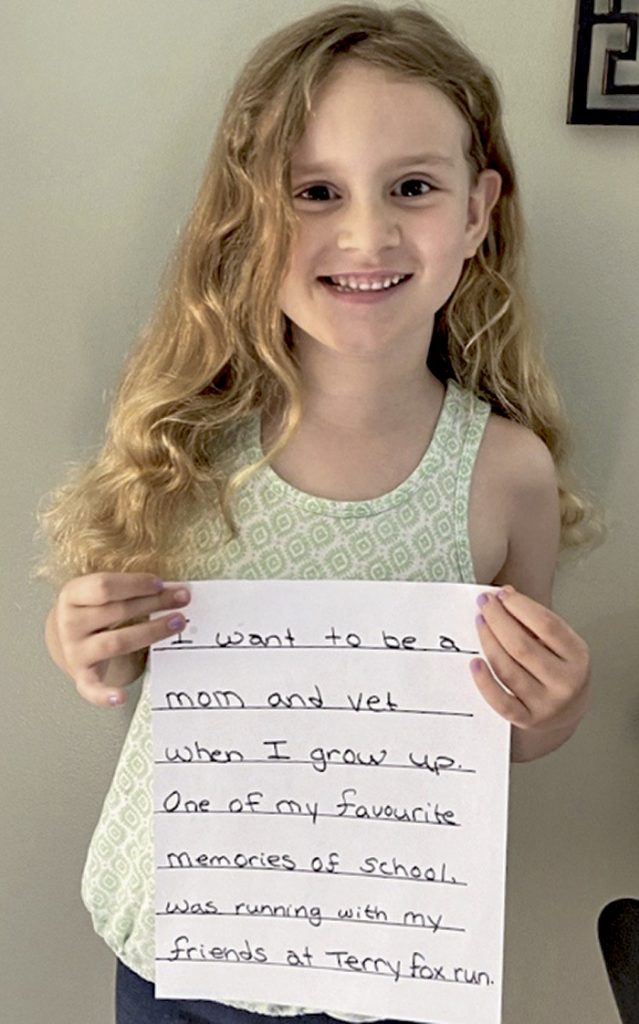 I want to be a
mom and vet
when I grow up.
One of my favourite
memories of school,
was running with my
friends at Terry fox run.